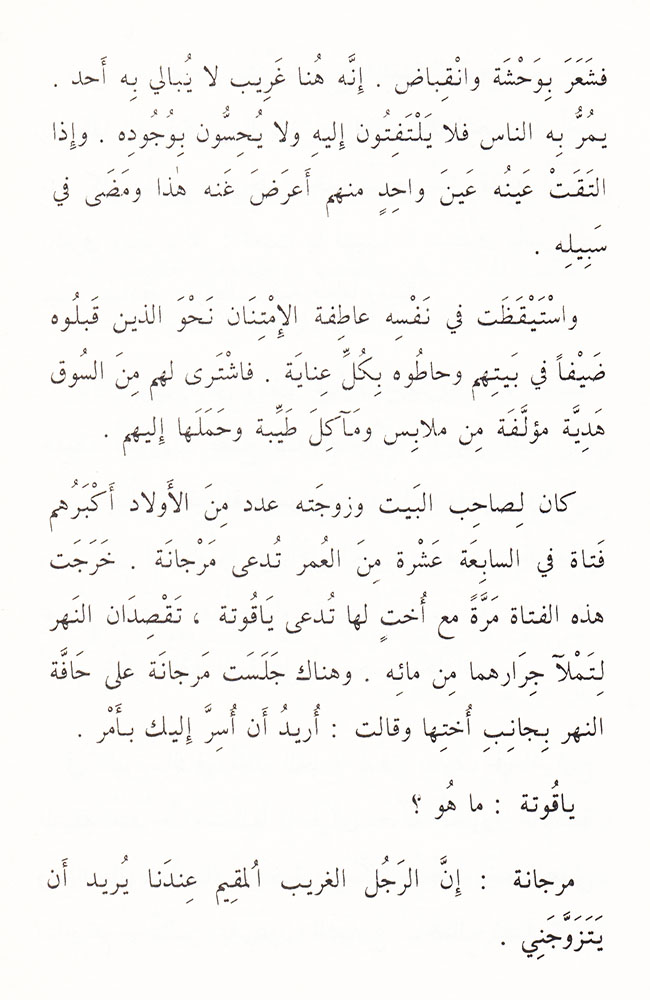 فشَعَرَ بِوَحْشَة وانْقِباض . إِنَّه هُنا غَرِيب لا يُبالي بِه أَحد .
يمُرُّ بِه الناس فلا يَلْتَفِتُون إِليهِ ولا يُحِسُّون بِوُجُودِه . وإِذا
التَقَتْ عَينُه عَينَ واحِدٍ منهم أَعرَضَ عَنه هٰذا ومَضَى في
سَبِيلِه .
واسْتَيْقَظَت في نَفْسِه عاطِفة الإِمْتِنَان نَحْوَ الذين قَبلُوه
ضَيْفاً في بَيتِهم وحاطُوه بِكُلِّ عِنايَة . فاشْتَرى لهم مِنَ السُوق
هَدِيَّة مؤلَّفَة مِن ملابِس ومَآكِلَ طَيِّبة وحَمَلَها إِليهم .
كان لِصاحِب البَيت وزوجَته عدد مِنَ الأَولاد أَكْبَرُهم
فَتاة في السابِعَة عَشْرة مِنَ العُمر تُدعى مَرْجانَة . خَرَجَت
هذه الفتاة مَرَّةً مع أُختٍ لها تُدعى يَاقُوتة ، تَقْصِدَان النَهر
لِتَمْلآ جِرَارهما مِن مائِه . وهناك جَلَسَت مَرجانَة على حَافَّة
النهر بِجانِبِ أُختِها وقالت : أُريدُ أَن أُسِرَّ إِليك بأَمْر .
ياقُوتة : ما هُو ؟
مرجانة : إِنَّ الرَجُل الغريب اُلمقِيم عِندَنا يُريد أَن
يَتَزَوَّجَنِي .